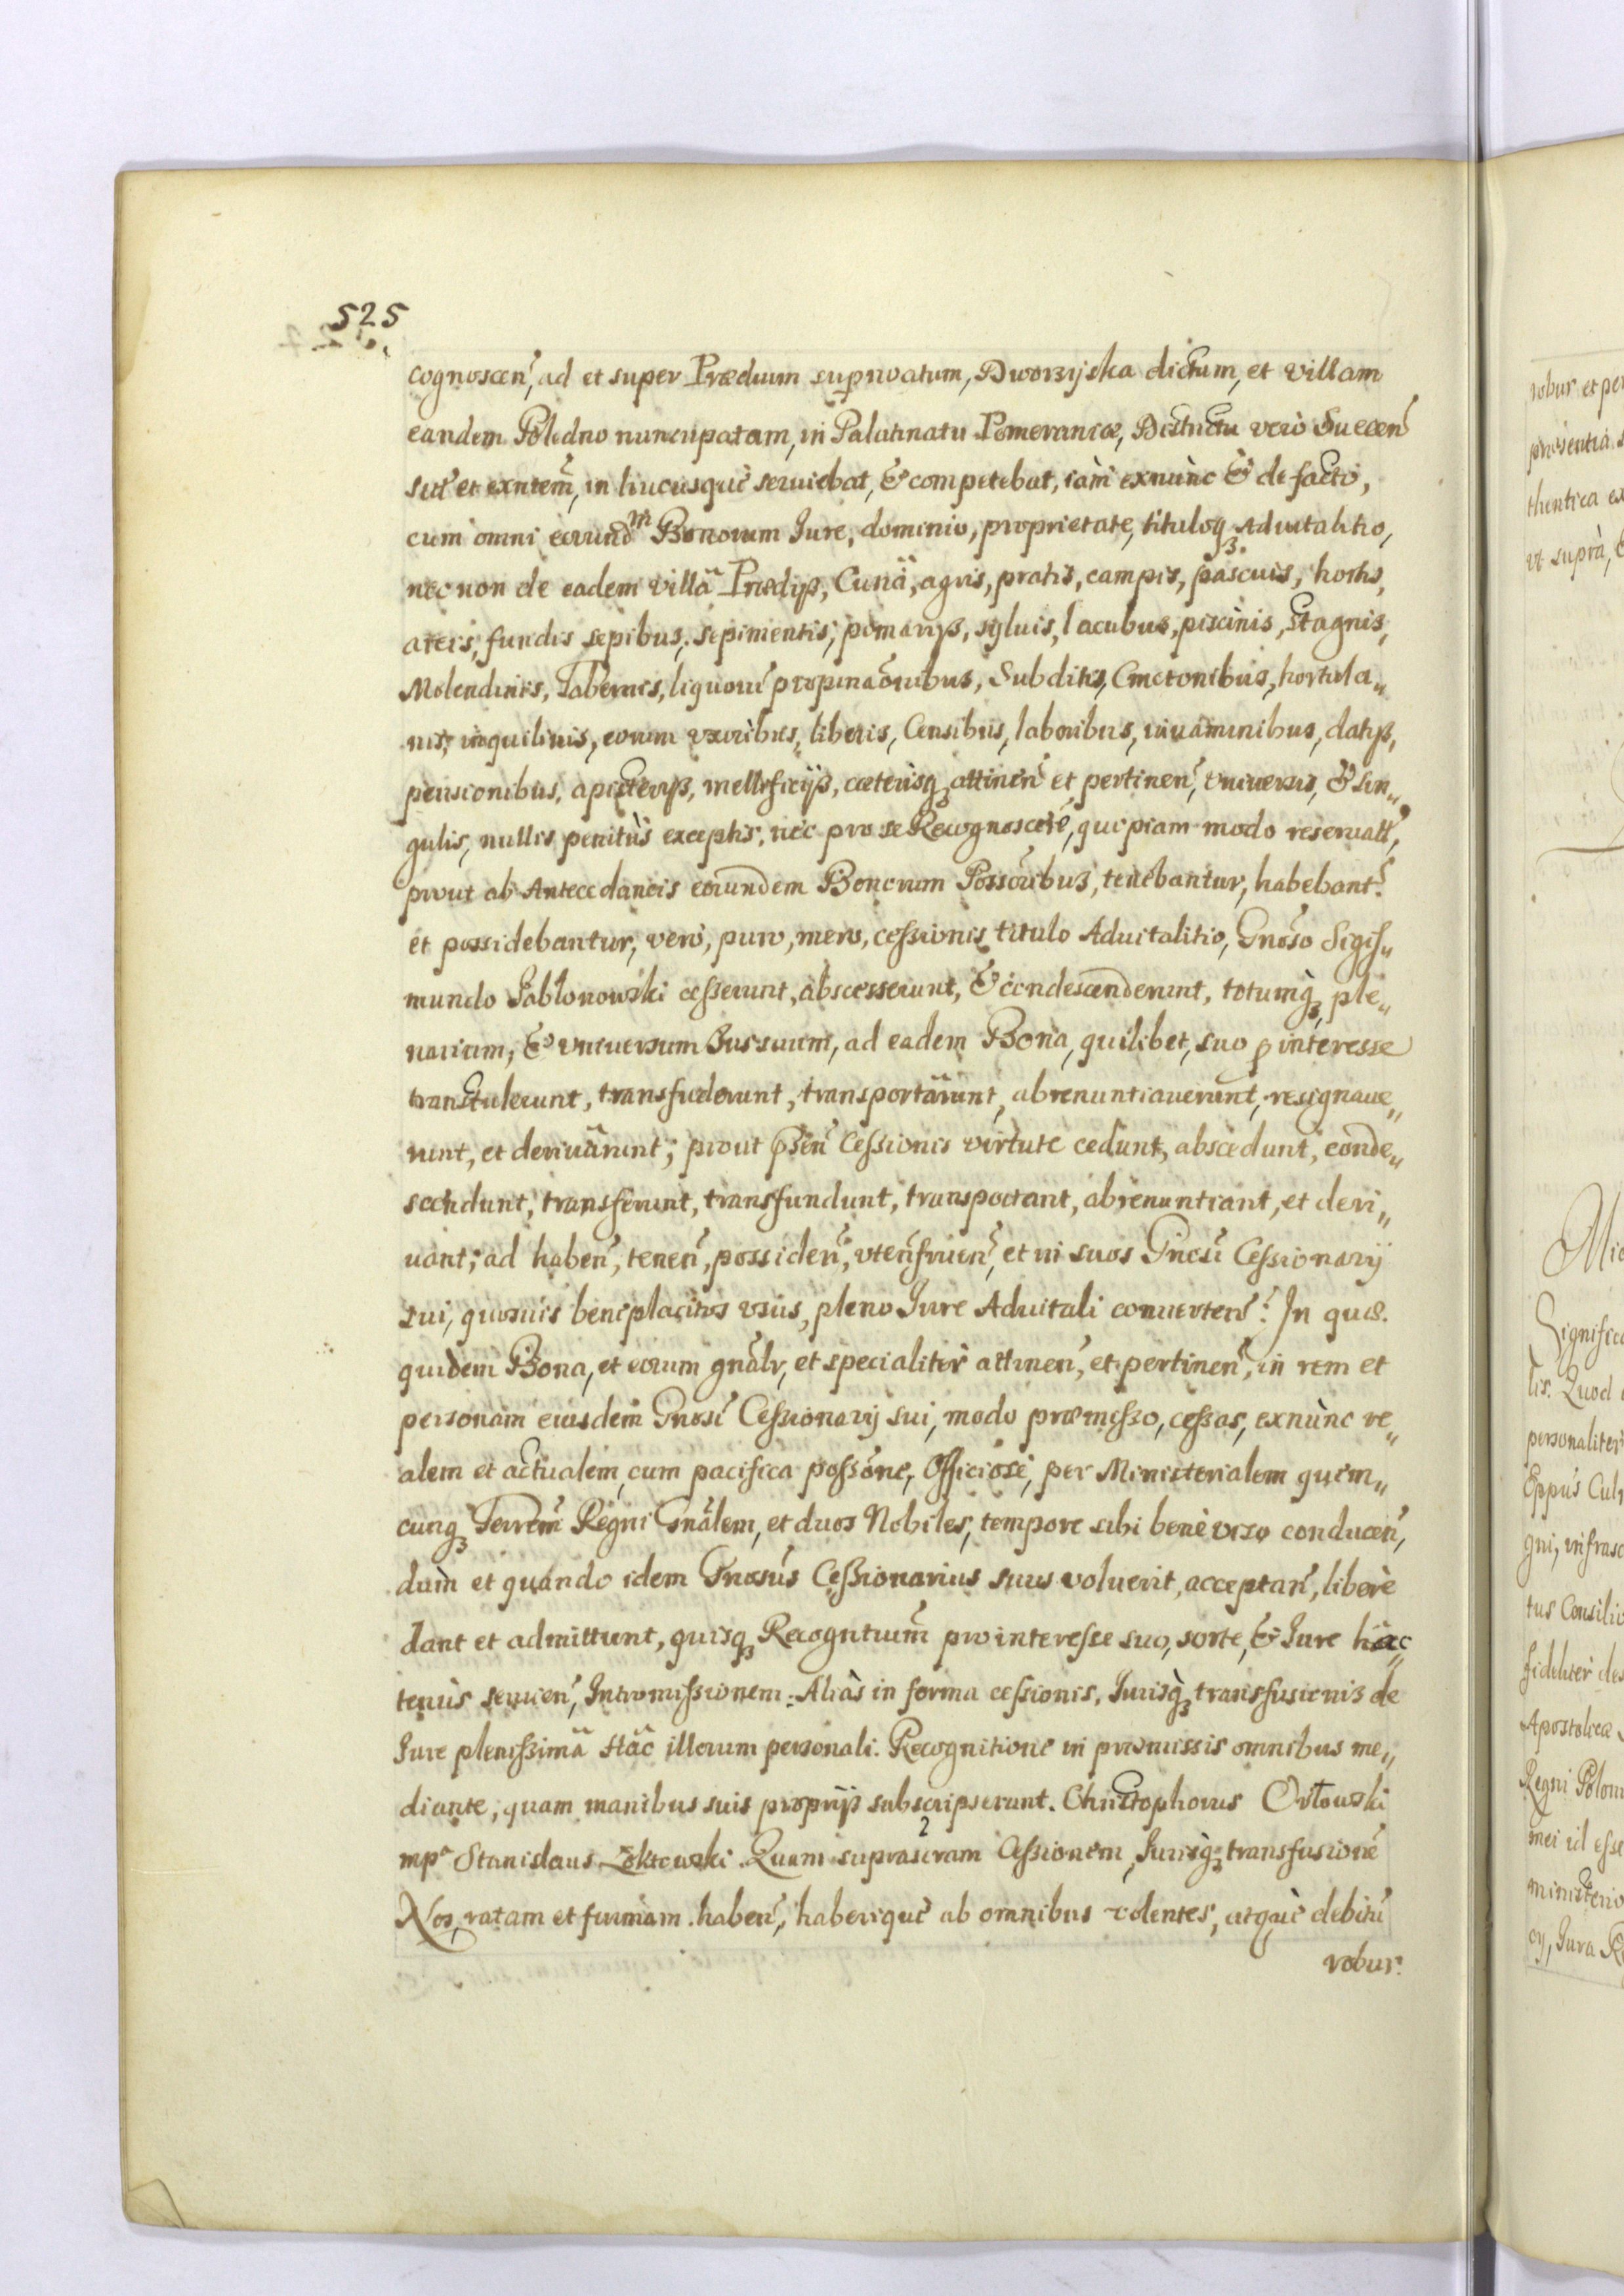 525
cognoscen̄, ad et super Prædium supnoatum, Dworzyska dictum, et villam
eandem Poledno nuncupatam, in Palatinatu Pomeraniæ, Districtu verò Suecen̄
sit̄ et exn̄tem̄, in hucusquè seruiebat, & competebat, iàm exnùnc & de facto,
cum omni eorund̄m Bonorum Iure, dominio, proprietate, tituloq3 Aduitalitio,
nec non de eadem villâ Prædijs, Curiâ, agris, pratis, campis, pascuis, hortis,
areis, fundis sepibus, sepimentis, pomarijs, syluis, lacubus, piscinis, Stagnis,
Molendinis, Tabernis, liquorū propinaōnibus, Subditis, Cmetonibus, hortula„
nis, inquilinis, eorum vxoribus, liberis, Censibus, laboribus, iuuaminibus, datijs,
pensionibus, apisterijs, mellificijs, cæterisq3 attinen̄ et pertinen̄, vniuersis, & sin„
gulis, nullis penitùs exceptis, nec pro se Recognoscētē, quopiam modo reseruatt̄,
prout ab Antecedaneis eorundem Bonorum Possōribus, tenebantur, habebant̄
et possidebantur, vero, puro, mero, cessionis titulo Aduitalitio, Gnōso Sigis„
mundo Jabłonowski cesserunt, abscesserunt, & condescenderunt, totumq̀3 ple„
narium, & vniuersum Ius suum, ad eadem Bona, quilibet, suo p interesse
transtulerunt, transfuderunt, transportârunt, abrenuntiauerunt, resignaue„
runt, et deriuârunt; prout p̄sen̄ Cessionis virtute cedunt, abscedunt, conde„
scendunt, transferunt, transfundunt, transportant, abrenuntiant, et deri„
uant; ad haben̄, tenen̄, possiden̄, vten̄fruen̄, et in suos Gnosi Cessionarij
sui, quosuis beneplacitos vsus, pleno Iure Aduitali conuerten̄. In quæ
quidem Bona, et eorum gnālr, et specialitèr attinen̄, et pertinen̄, in rem et
personam eiusdem Gnosi Cessionarij sui, modo præmisso, cessas, exnùnc re„
alem et actualem, cum pacifica possōne, Officiosè, per Ministerialem quem„
cunq3 Terrēm Regni Gnālem, et duos Nobiles, tempore sibi benè viso conducen̄,
dum et quando idem Gnosus Cessionarius suus voluerit, acceptan̄, liberè
dant et admittunt, quisq3 Recognituum̄ pro interesse suo, sorte, & Iure hac„
tenùs seruien̄, Intromissionem. Aliàs in forma cessionis, Iurisq̀3 transfusionis de
Iure plenissimâ Hâc illorum personali. Recognitione in præmissis omnibus me„
diante, quam manibus suis proprijs subscripserunt. Christophorus Orłowski
mp. Stanislaus Zoktowski. Quam suprascram Cessionem, Iurisq̀3 transfusionē
Nos, ratam et firmam haben̄, haberiquè ab omnibus volentes, atquè debitū
robur.